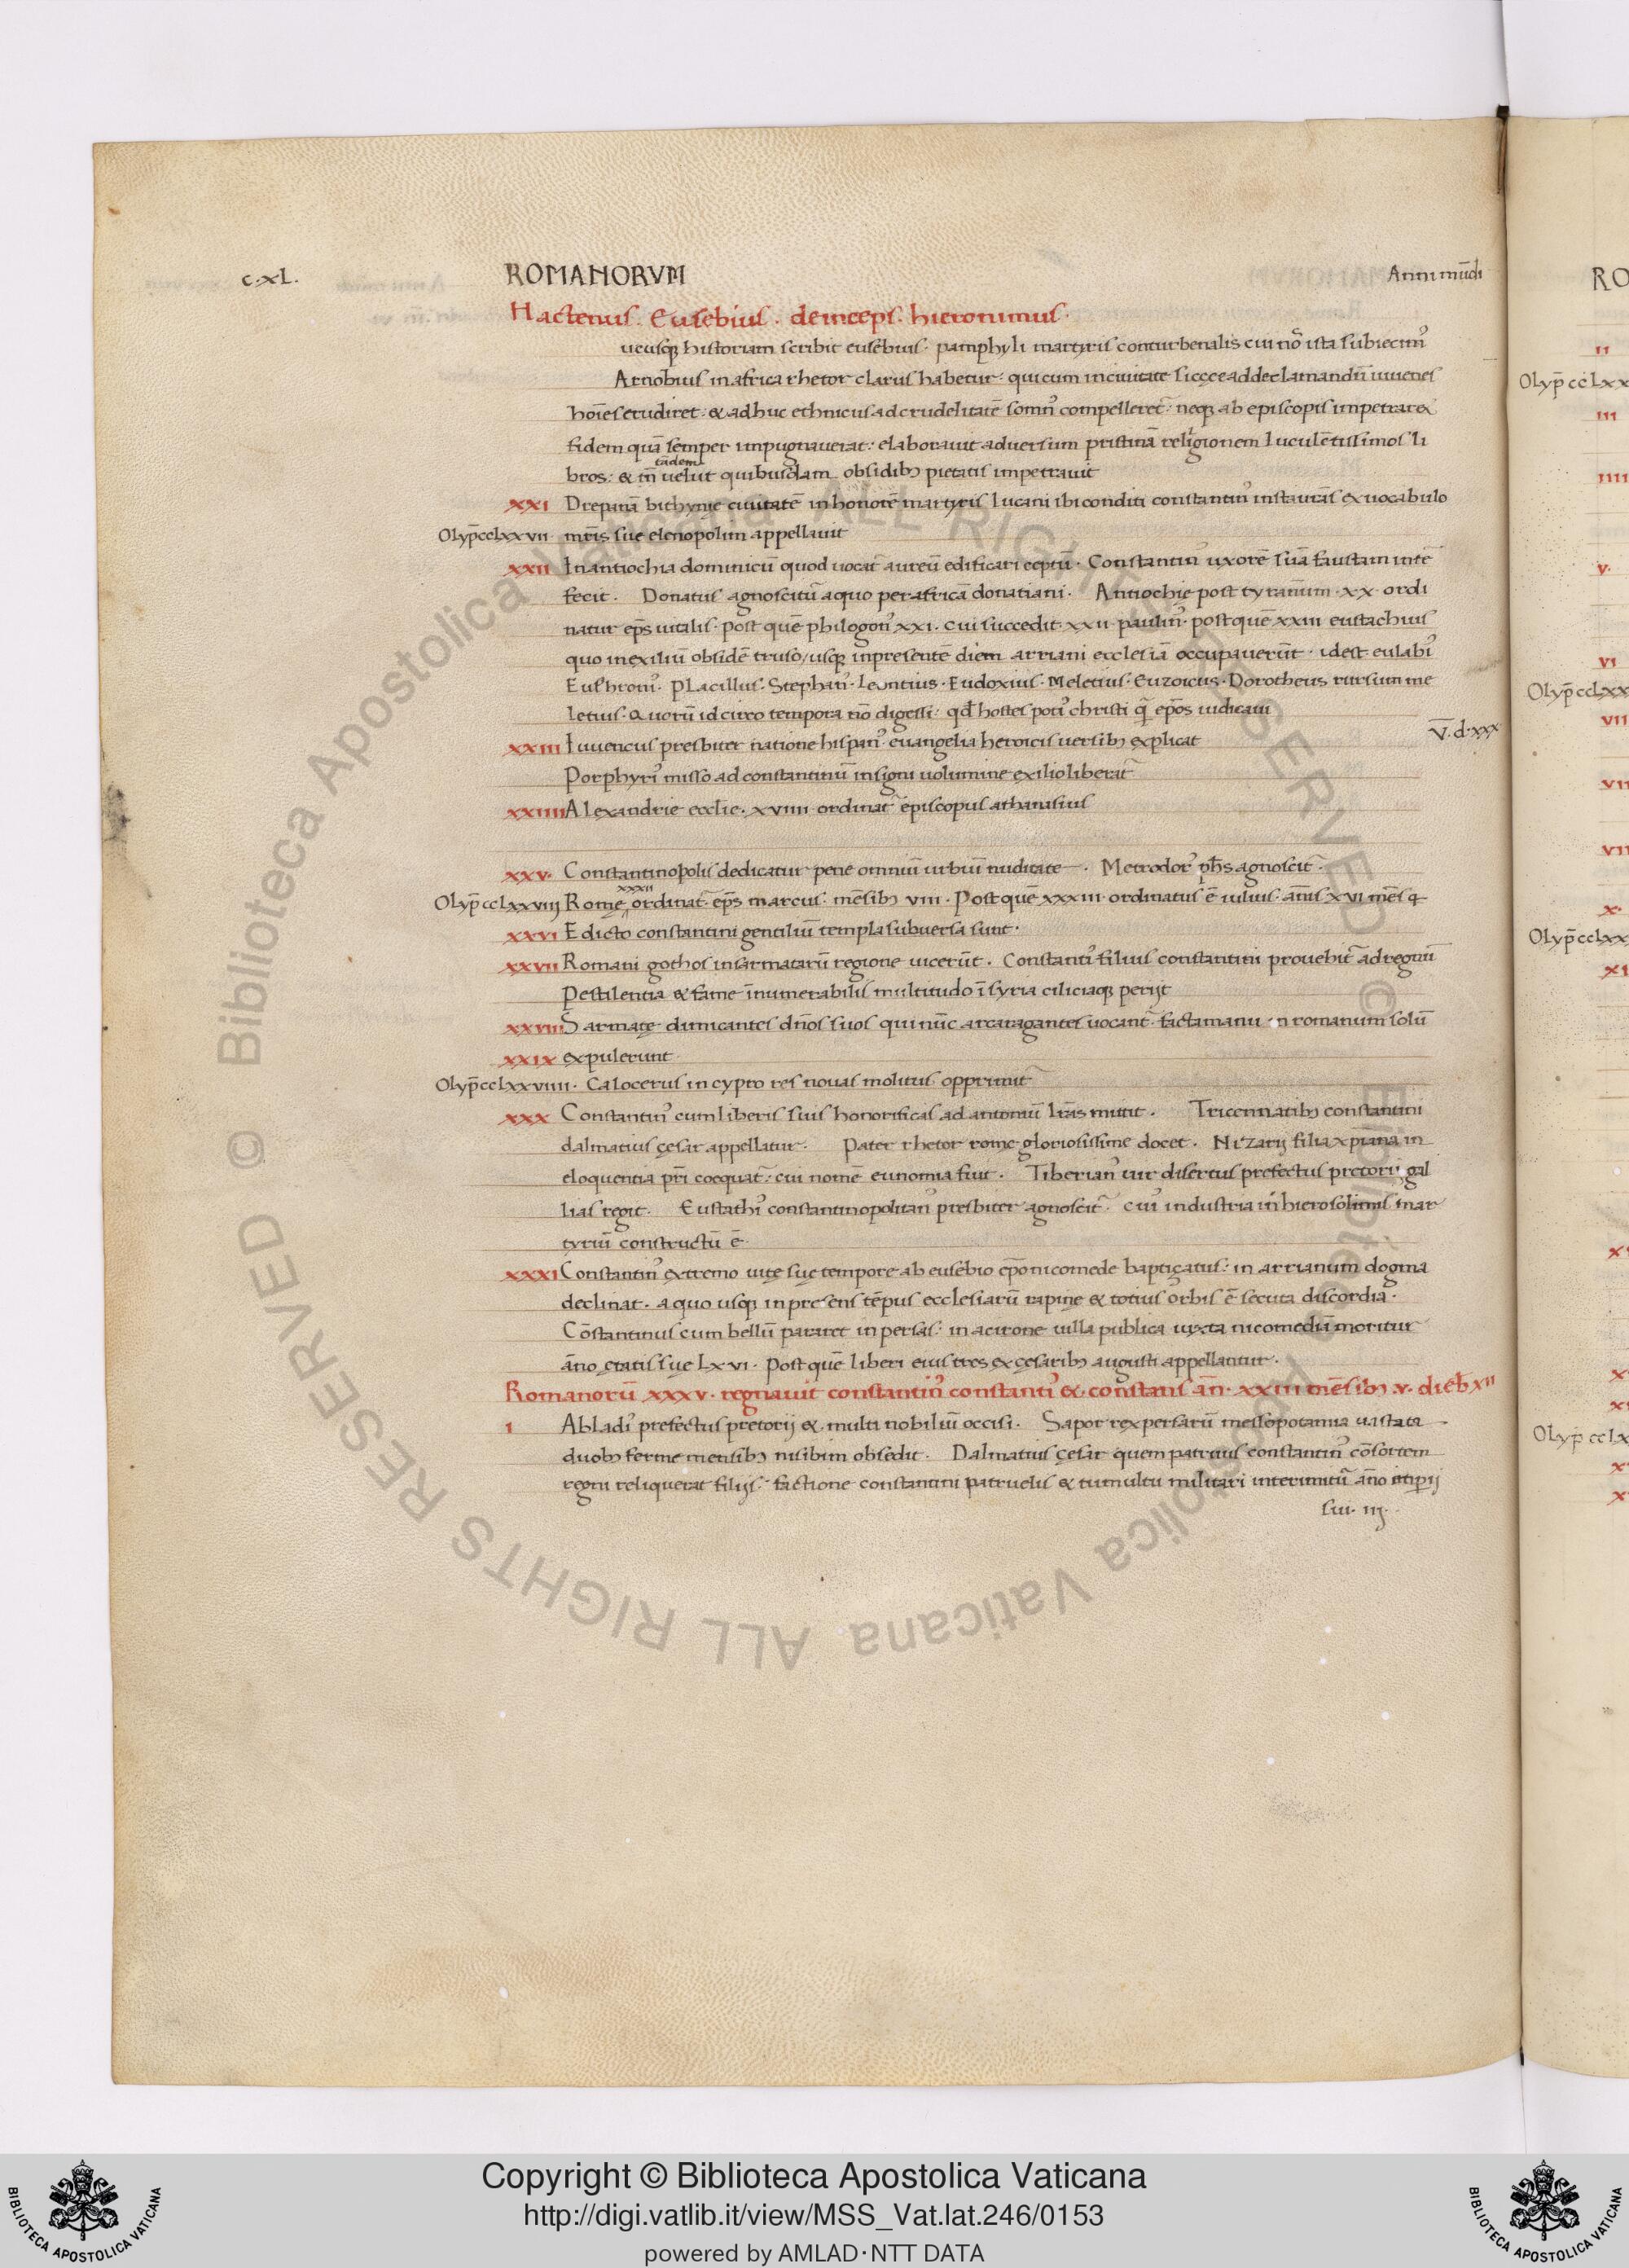 c.xL. ROMANORVM Anni mūdi
Hactenus. Eusebius. deinceps. hieronimus.
ucusq; historiam scribit eusebius. pamphyli martyris conturbenalis cui nō ista subiecim᾿
Arnobius in africa rhetor clarus habetur. qui cum in ciuitate siccę ad declamandū iuuenes
hoīes erudiret. & ad huc ethnicus ad crudelitatē somn᾿ compelleret᷑. neq; ab episcopis impetraret
fidem quā semper impugnauerat: elaborauit aduersum pristinā religionem luculētissimos li
bros: & tn̄ uelut quibusdam obsidib; pietatis impetrauit
tādem
XXI Drepanā bithynię ciuitatē in honorē martyris lucani ibi conditi constantin᾿ instaurās ex uocabulo
Olyp̄ cclxxvii mr̄is sue elenopolim appellauit
XXII In antiochia dominicū quod uocat᷑ aureū edificari ceptū. Constantin᾿ uxorē suā faustam inte
fecit. Donatus agnoscitū a quo per africā donatiani. Antiochie post tyrannum. xx. ordi
natur ep̄s uitalis. post quē philogon᾿ xxi. cui succedit. xxii. paulin᾿. post quē xxiii eustachius
quo in exiliū obsidē truso, usq; in presentē diem arriani ecclesiā occupauerūt. idest eulabi᾿
Eufhroni᾿. Placillus. Stephan᾿. Leontius. Eudoxius. Meletius. Euzoicus. Dorotheus rursum me
letius. Quorū idcirco tempora nō digessi. qd̄ hostes poti᾿ christi q̄ ep̄os iudicaui
V̄.d.xxx
XXIII Iuuencus presbiter natione hispan᾿ euangelia heroicis uersib; explicat
Porphyri᾿ misso ad constantinū insigni uolumine exilio liberat᷑
XXIIII Alexandrie eccl̄ie. xviiii ordinat᷑ episcopus athanasius
XXV. Constantinopolis dedicatur pene omniū urbiū nuditate. Metrodor᾿ ph̄s agnoscit᷑.
xxxii
Olyp̄ cclxxviij Romę, ordinat᷑ ep̄s marcus. mēsib; viii. Post quē xxxiii. ordinatus ē iulius. annis xvi mēs 4
XXVI Edicto constantini gentiliū templa subuersa sunt.
XXVII Romani gothos in sarmatarū regione uicerūt. Constanti᾿ filius constantini prouehit᷑ ad regnū
Pestilentia & fame īnumerabilis multitudo ī syria ciliciaq; perijt
XXVIII Sarmatę dimicantes dn̄os suos qui nūc arcaragantes uocant᷑ facta manu in romanum solū
XXIX expulerunt
Olyp̄ cclxxviiii. Calocerus in cypro res nouas molitus opprimit᷑
XXX Constantin᾿ cum liberis suis honorificas ad antoniū lr̄as mittit. Tricennatib; constantini
dalmatius cęsar appellatur. Pater rhetor rome gloriosissime docet. Nizarij filia xp̄iana in
eloquentia pr̄i coequat᷑: cui nomē eunomia fuit. Tiberian᾿ uir disertus prefectus pretorij gal
lias regit. Eustathi᾿ constantinopolitan᾿ presbiter agnoscit᷑. cui᾿ industria in hierosolimis mar
tyriū constructū ē.
XXXI Constantin᾿ extremo uitę suę tempore ab eusebio ep̄o nicomede baptiçatus: in arrianum dogma
declinat. a quo usq; in presens tēpus ecclesiarū rapinę & totius orbis ē secuta discordia.
Cōstantinus cum bellū pararet in persas: in acirone uilla publica iuxta nicomediā moritur
āno ętatis suę Lxvi. Post quē liberi eius tres ex cęsarib; augusti appellantur.
Romanorū xxxv. regnauit constantin᾿ constanti᾿ & constans an̄. xxiii mēsib; v. dieb; xii
I Abladi᾿ prefectus pretorij & multi nobiliū occisi. Sapor rex persarū messopotamia uastata
duob; ferme mensib; nisibim obsedit. Dalmatius cęsar quem patruus constantin᾿ cōsortem
regni reliquerat filijs: factione constantini patruelis & tumultu militari interimitū āno imperij
sui. iij.
II
Olyp̄ cclxx
III
IIII
V.
VI
Olyp̄ cclxx
VII
X.
Olyp̄ cclxx
XI
Olyp̄ cclx
© Biblioteca Apostolica Vaticana ALL RIGHTS RESERVED © Biblioteca Apostolica Vaticana ALL RIGHTS RESERVED
Copyright © Biblioteca Apostolica Vaticana
http://digi.vatlib.it/view/MSS_Vat.lat.246/0153
powered by AMLAD·NTT DATA
BIBLIOTECA APOSTOLICA VATICANA
BIBLIOTECA APOSTOLICA VATICANA